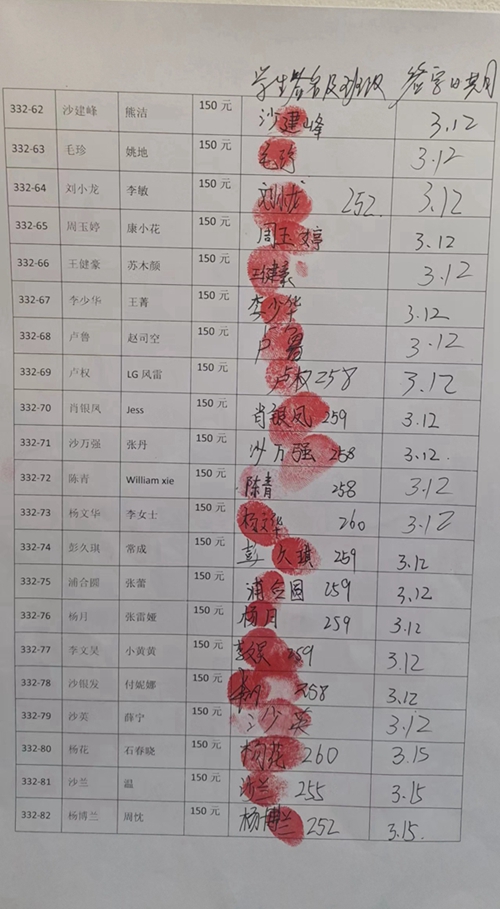 学生签名及班级 签字日期
332-62 沙建峰 熊洁 150 元 沙建峰 3.12
332-63 毛珍 姚地 150 元 毛珍 3.12
332-64 刘小龙 李敏 150 元 刘小龙 252 3.12
332-65 周玉婷 康小花 150 元 周玉婷 3.12
332-66 王健豪 苏木颜 150 元 王健豪 3.12
332-67 李少华 王菁 150 元 李少华 3.12
332-68 卢鲁 赵司空 150 元 卢鲁 3.12
332-69 卢权 LG 风雷 150 元 卢权 258 3.12
332-70 肖银凤 Jess 150 元 肖银凤 259 3.12
332-71 沙万强 张丹 150 元 沙万强 258 3.12.
332-72 陈青 William xie 150 元 陈青 258 3.12
332-73 杨文华 李女士 150 元 杨文华 260 3.12
332-74 彭久琪 常成 150 元 彭久琪 259 3.12
332-75 浦合圆 张蕾 150 元 浦合圆 259 3.12
332-76 杨月 张雷娅 150 元 杨月 259 3.12
332-77 李文昊 小黄黄 150 元 李文昊 259 3.12
332-78 沙银发 付妮娜 150 元 258 3.12
332-79 沙英 薛宁 150 元 沙英 3.12
332-80 杨花 石春晓 150 元 杨花 260 3.15
332-81 沙兰 温 150 元 沙兰 255 3.15
332-82 杨博兰 周忱 150 元 杨博兰 252 3.15.